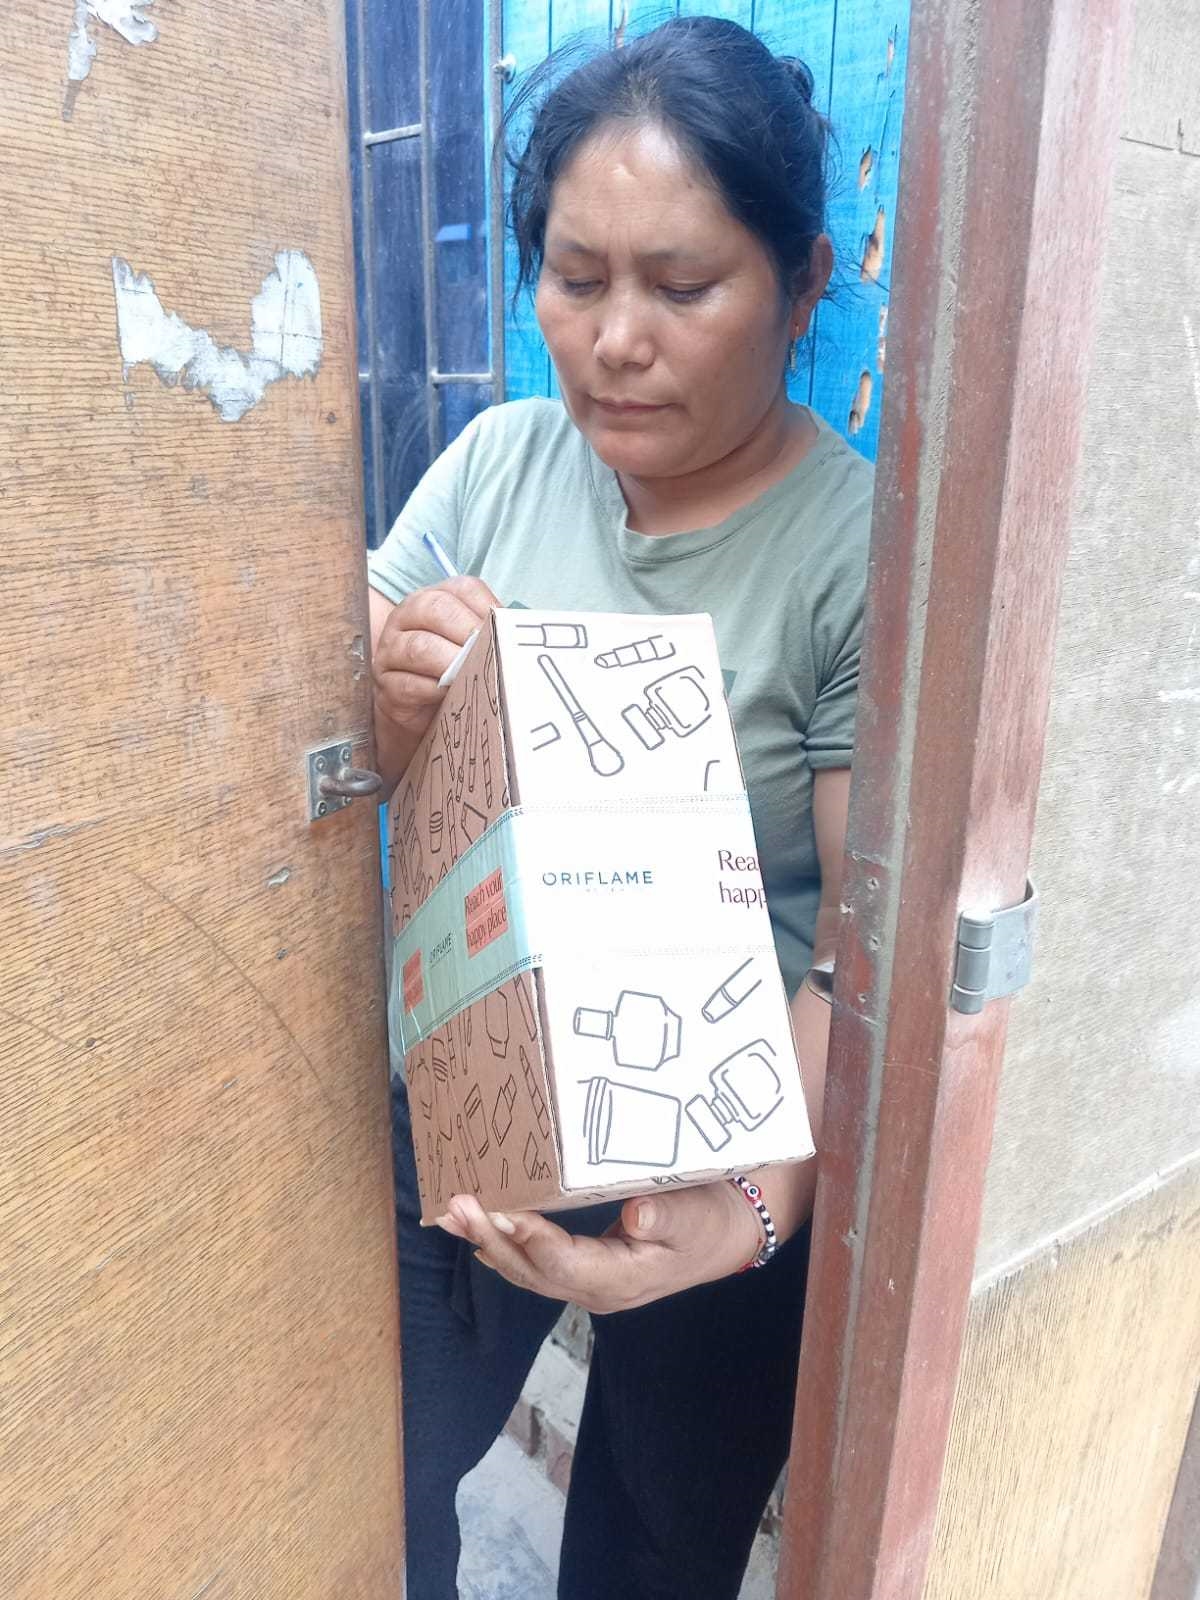 ORIFLAME
Rea
happ
Reach your
happy place
ORIFLAME